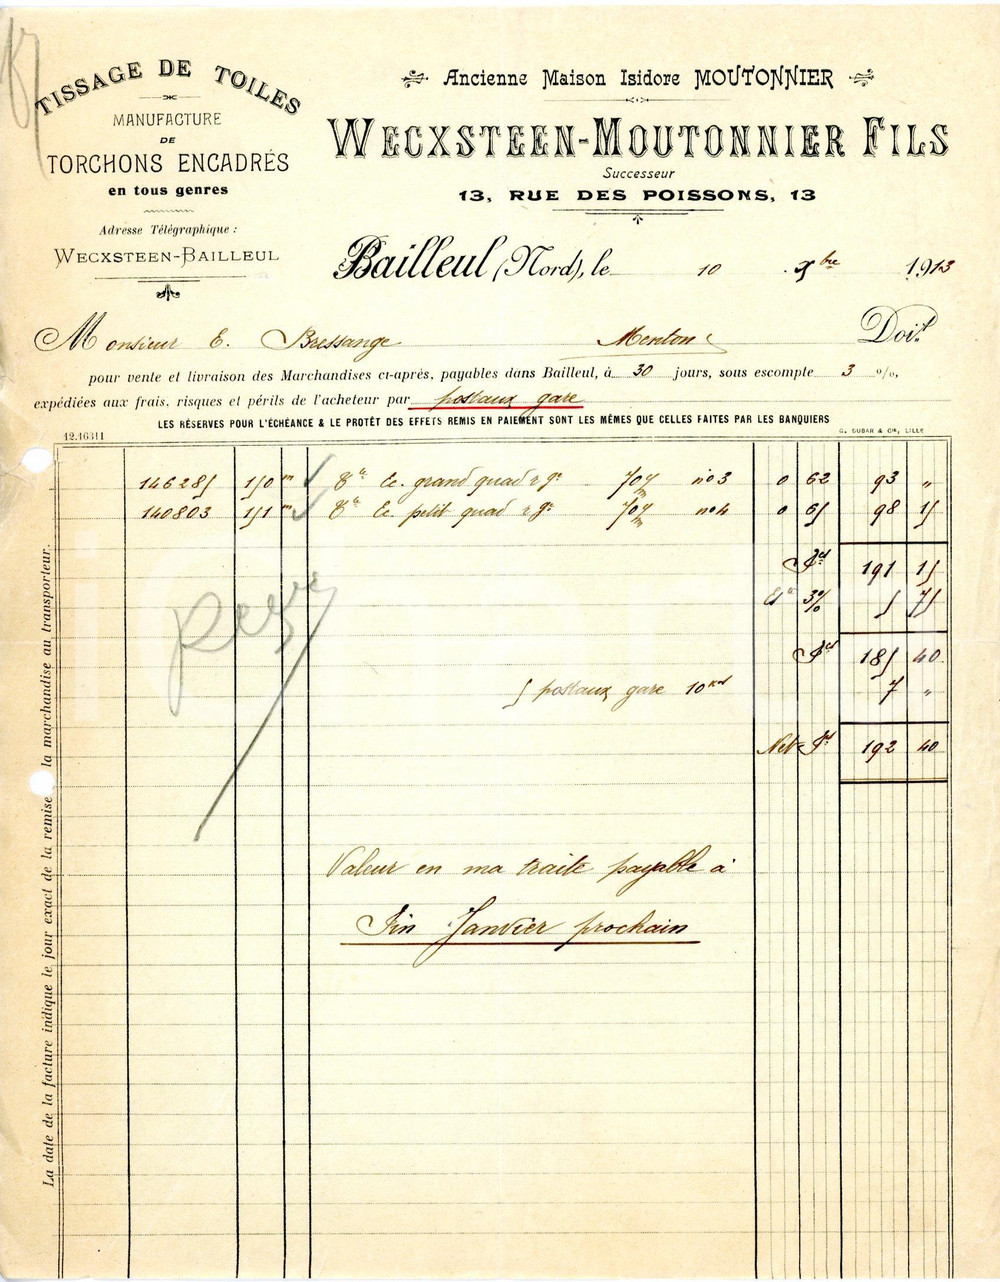 TISSAGE DE TOILES
MANUFACTURE
DE
TORCHONS ENCADRÉS
en tous genres
Adresse Télégraphique :
WECXSTEEN-BAILLEUL
Ancienne Maison Isidore MOUTONNIER
WECXSTEEN-MOUTONNIER FILS
Successeur
13, RUE DES POISSONS, 13
Bailleul (Nord), le 10 Xbre 1913
Monsieur E. Bressange Menton Doit
pour vente et livraison des Marchandises ci-après, payables dans Bailleul, à 30 jours, sous escompte 3 %,
expédiées aux frais, risques et périls de l'acheteur par postaux gare
LES RÉSERVES POUR L'ÉCHÉANCE & LE PROTÊT DES EFFETS REMIS EN PAIEMENT SONT LES MÊMES QUE CELLES FAITES PAR LES BANQUIERS
12.16311
G. DUBAR & Cie, LILLE
146285 150 m Ec. grand quad 70 no 3 0 62 93 "
140803 151 m Ec. petit quad 70 no 4 0 65 98 15
191 15
3% 5 75
185 40
5 postaux gare 10 7 "
Net 192 40
Valeur en ma traite payable à
Fin Janvier prochain
La date de la facture indique le jour exact de la remise de la marchandise au transporteur.